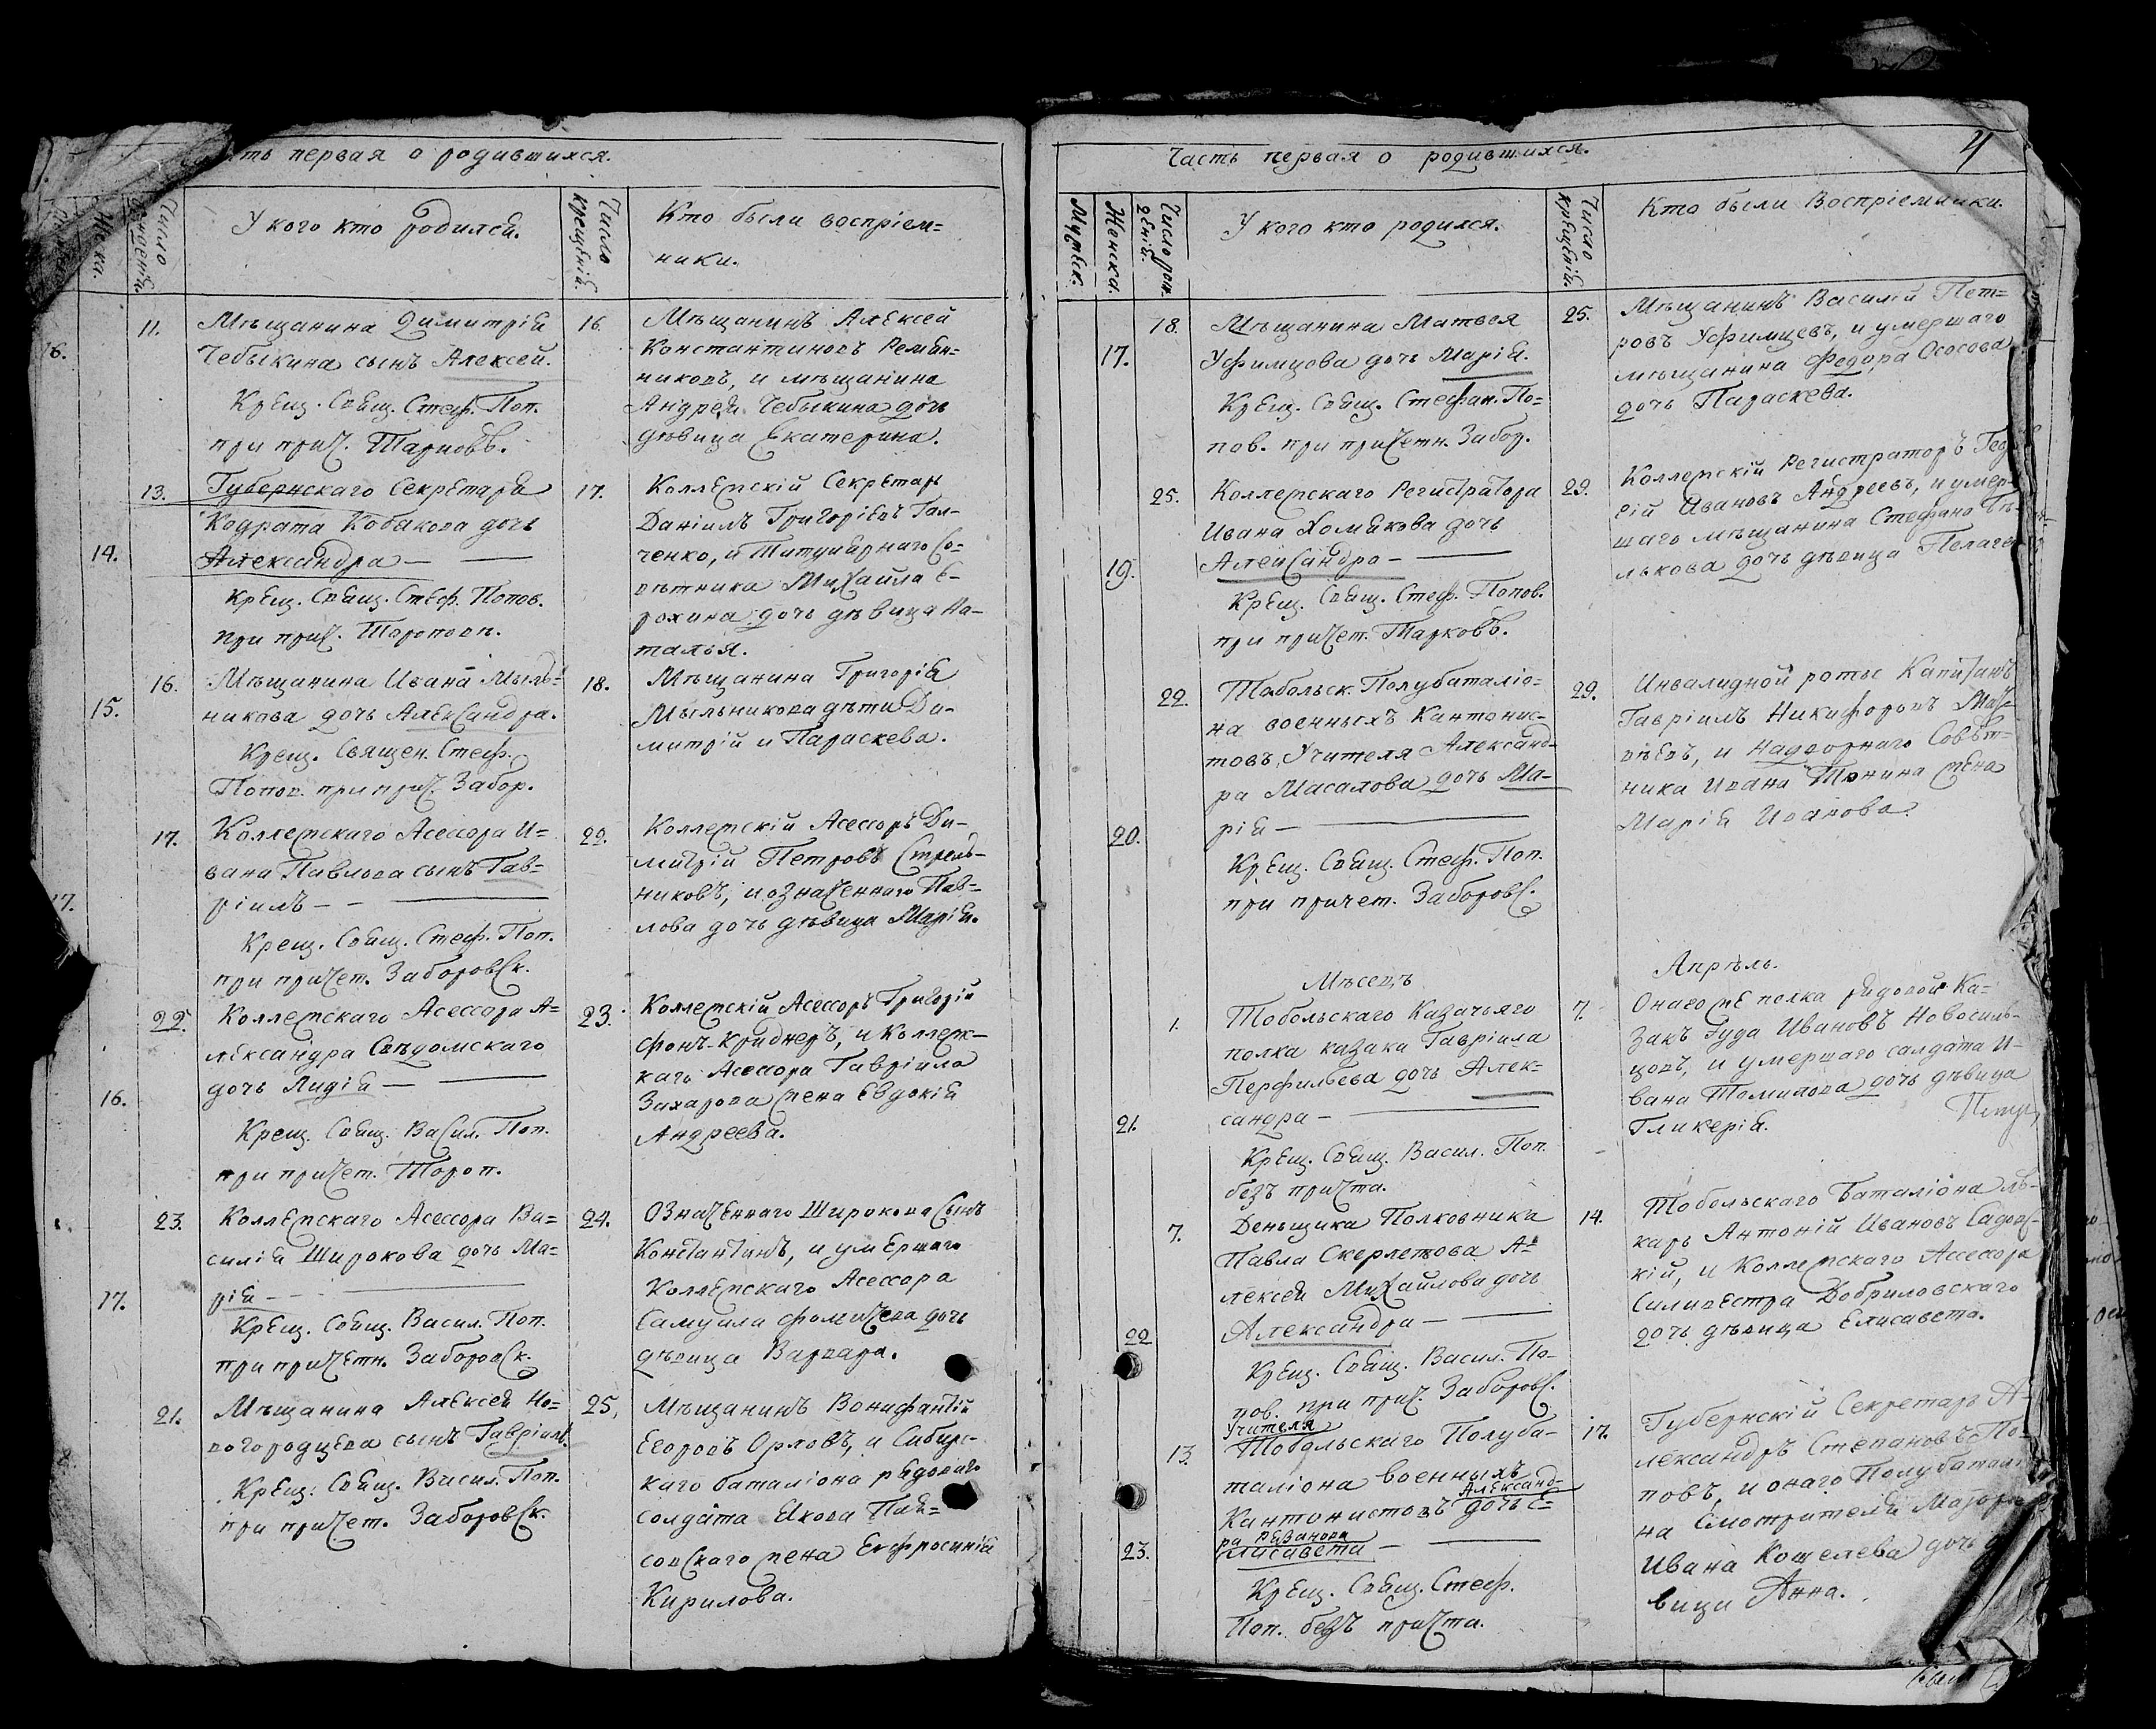 ть первая о родившихся.
Женска.
Число
У кого кто родился.
Число крещенія.
Кто были воспріем=
ники.
16.
11.
Мѣщанина Димитрія
Чебыкина сынъ Алексей.
Крещ. Свящ. Стеф. Поп.
при прич.
16.
Мѣщанинъ Алексей
Константиновъ Ремян=
никовъ, и мѣщанина
Андрея Чебыкина дочь
дѣвица Екатерина.
14.
13.
Губернскаго Секретаря
Кодрата Кобакова дочь
Александра —
Крещ. Свящ. Стеф. Попов.
при прич.
17.
Коллежскій Секретарь
Даніилъ Григоріевъ Гал=
ченко, и Титулярнаго Со=
вѣтника Михаила Е=
рохина дочь дѣвица На=
талья.
15.
16.
Мѣщанина Ивана Мыль=
никова дочь Александра.
Крещ. Священ. Стеф.
Попов. при прич. Забор.
18.
Мѣщанина Григорія
Мыльникова дѣти Ди=
митрій и Параскева.
17.
17.
Коллежскаго Асессора И=
вана Павлова сынъ Гав=
ріилъ —
Крещ. Свящ. Стеф. Поп.
при причет. Заборовск.
22.
Коллежскій Асессоръ Ди=
митрій Петровъ Стрель=
никовъ, и означеннаго Пав=
лова дочь дѣвица Марія.
16.
22.
Коллежскаго Асессора А=
лександра Свѣдомскаго
дочь Лидія —
Крещ. Свящ. Васил. Поп.
при причет. Тороп.
23.
Коллежскій Асессоръ Григорій
фонъ-Криднеръ, и Коллеж=
каго Асессора Гавріила
Захарова жена Евдокія
Андреева.
17.
23.
Коллежскаго Асессора Ва=
силія Широкова дочь Ма=
рія —
Крещ. Свящ. Васил. Поп.
при причетн. Заборовск.
24.
Означеннаго Широкова сынъ
Константинъ, и умершаго
Коллежскаго Асессора
Самуила Фомичева дочь
дѣвица Варвара.
21.
Мѣщанина Алексея Но=
вогородцева сынъ Гавріилъ.
Крещ. Свящ. Васил. Поп.
при причет. Заборовск.
25.
Мѣщанинъ Вонифантій
Егоровъ Орловъ, и Сибирс=
каго баталіона рядоваго
солдата Якова
жена Евфросинія
Кирилова.
Часть первая о родившихся.
4
Мужеск.
Женска.
Число рож=
денія.
У кого кто родился.
Число крещенія.
Кто были Воспріемники.
17.
18.
Мѣщанина Матвея
Уфимцова дочь Марія.
Крещ. Свящ. Стефан. По=
пов. при причетн. Забор.
25.
Мѣщанинъ Василій Пет=
ровъ Уфимцевъ, и умершаго
мѣщанина Федора Ососова
дочь Параскева.
19.
25.
Коллежскаго Регистратора
Ивана Хомякова дочь
Александра —
Крещ. Свящ. Стеф. Попов.
при причет.
29.
Коллежскій Регистраторъ
Ивановъ Андреевъ, и умер=
шаго мѣщанина Стефана
лькова дочь дѣвица
20.
22.
Тобольск. Полубаталіо=
на военныхъ Кантонис=
товъ Учителя Александ=
ра Масалова дочь Ма=
рія —
Крещ. Свящ. Стеф. Поп.
при причет. Заборовс.
29.
Инвалидной роты Капитанъ
Гавріилъ Никифоровъ
и Надворнаго Совѣт=
ника Ивана Тюнина жена
Марія Иванова.
Мѣсецъ
Апрѣль.
21.
1.
Тобольскаго Казачьяго
полка казака Гавріила
Перфильева дочь Алек=
сандра —
Крещ. Свящ. Васил. Поп.
безъ причта.
7.
Онаго же полка рядовой Ка=
закъ Іуда Ивановъ Новосиль=
цовъ, и умершаго солдата И=
вана Томилова дочь дѣвица
Гликерія.
22
7.
Деньщика Полковника
Павла Скерлетова А=
лексея Михайлова дочь
Александра —
Крещ. Свящ. Васил. По=
пов. при прич. Заборовс.
14.
Тобольскаго Баталіона лѣ=
карь Антоній Ивановъ Садовс=
кій, и Коллежскаго Асессора
Силивестра Добриловскаго
дочь дѣвица Елисавета.
23.
13.
Учителя
Тобольскаго Полуба=
таліона военныхъ
Александ=
Кантонистовъ дочь Е=
ра Рязанова
лисавета —
Крещ. Свящ. Стеф.
Поп. безъ причта.
17.
Губернскій Секретарь А=
лександръ Степановъ По=
повъ, и онаго Полубатал
на Смотрителя Маіора
Ивана Кошелева дочь
вица Анна.